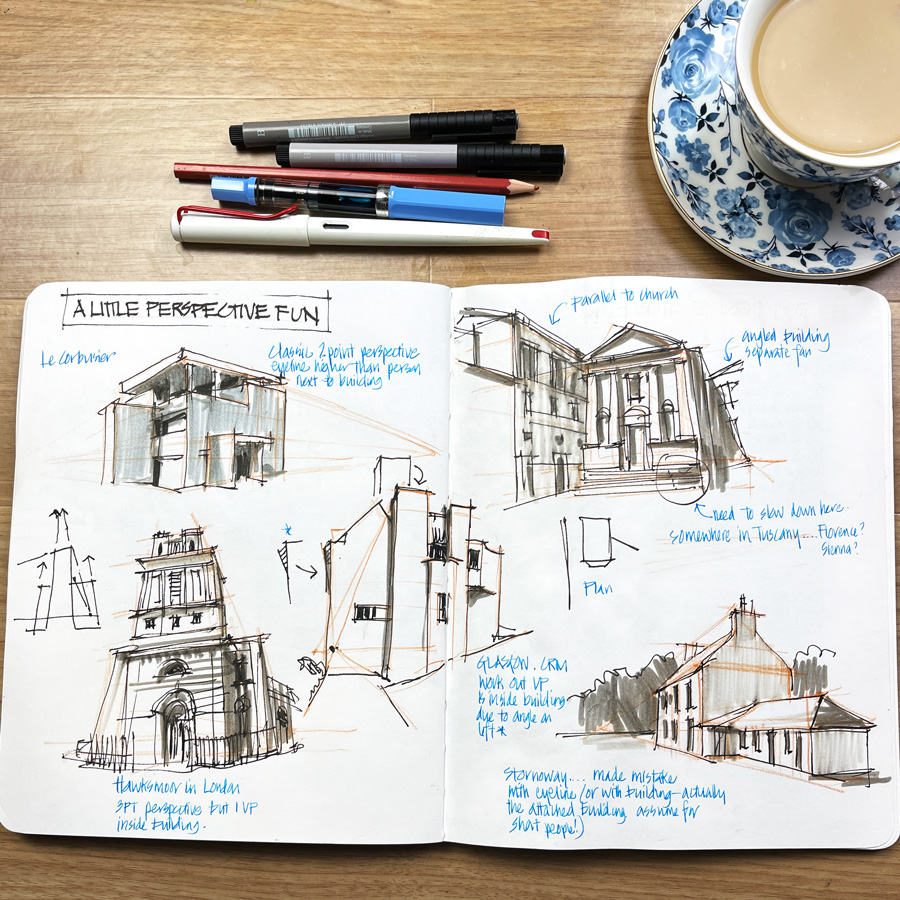 A LITTLE PERSPECTIVE FUN
Le Corbusier
Classic 2 point perspective
eyeline higher than person
next to building
Hawksmoor in London
3PT perspective but 1 VP
inside building.
parallel to church
angled building
separate fan
need to slow down here.
somewhere in Tuscany.... Florence?
Sienna?
Plan
GLASGOW. CRM
work out VP
is inside building
due to angle on
left *
Stornoway.... made mistake
with eyeline (or with building - actually
the attached building assume for
short people!)